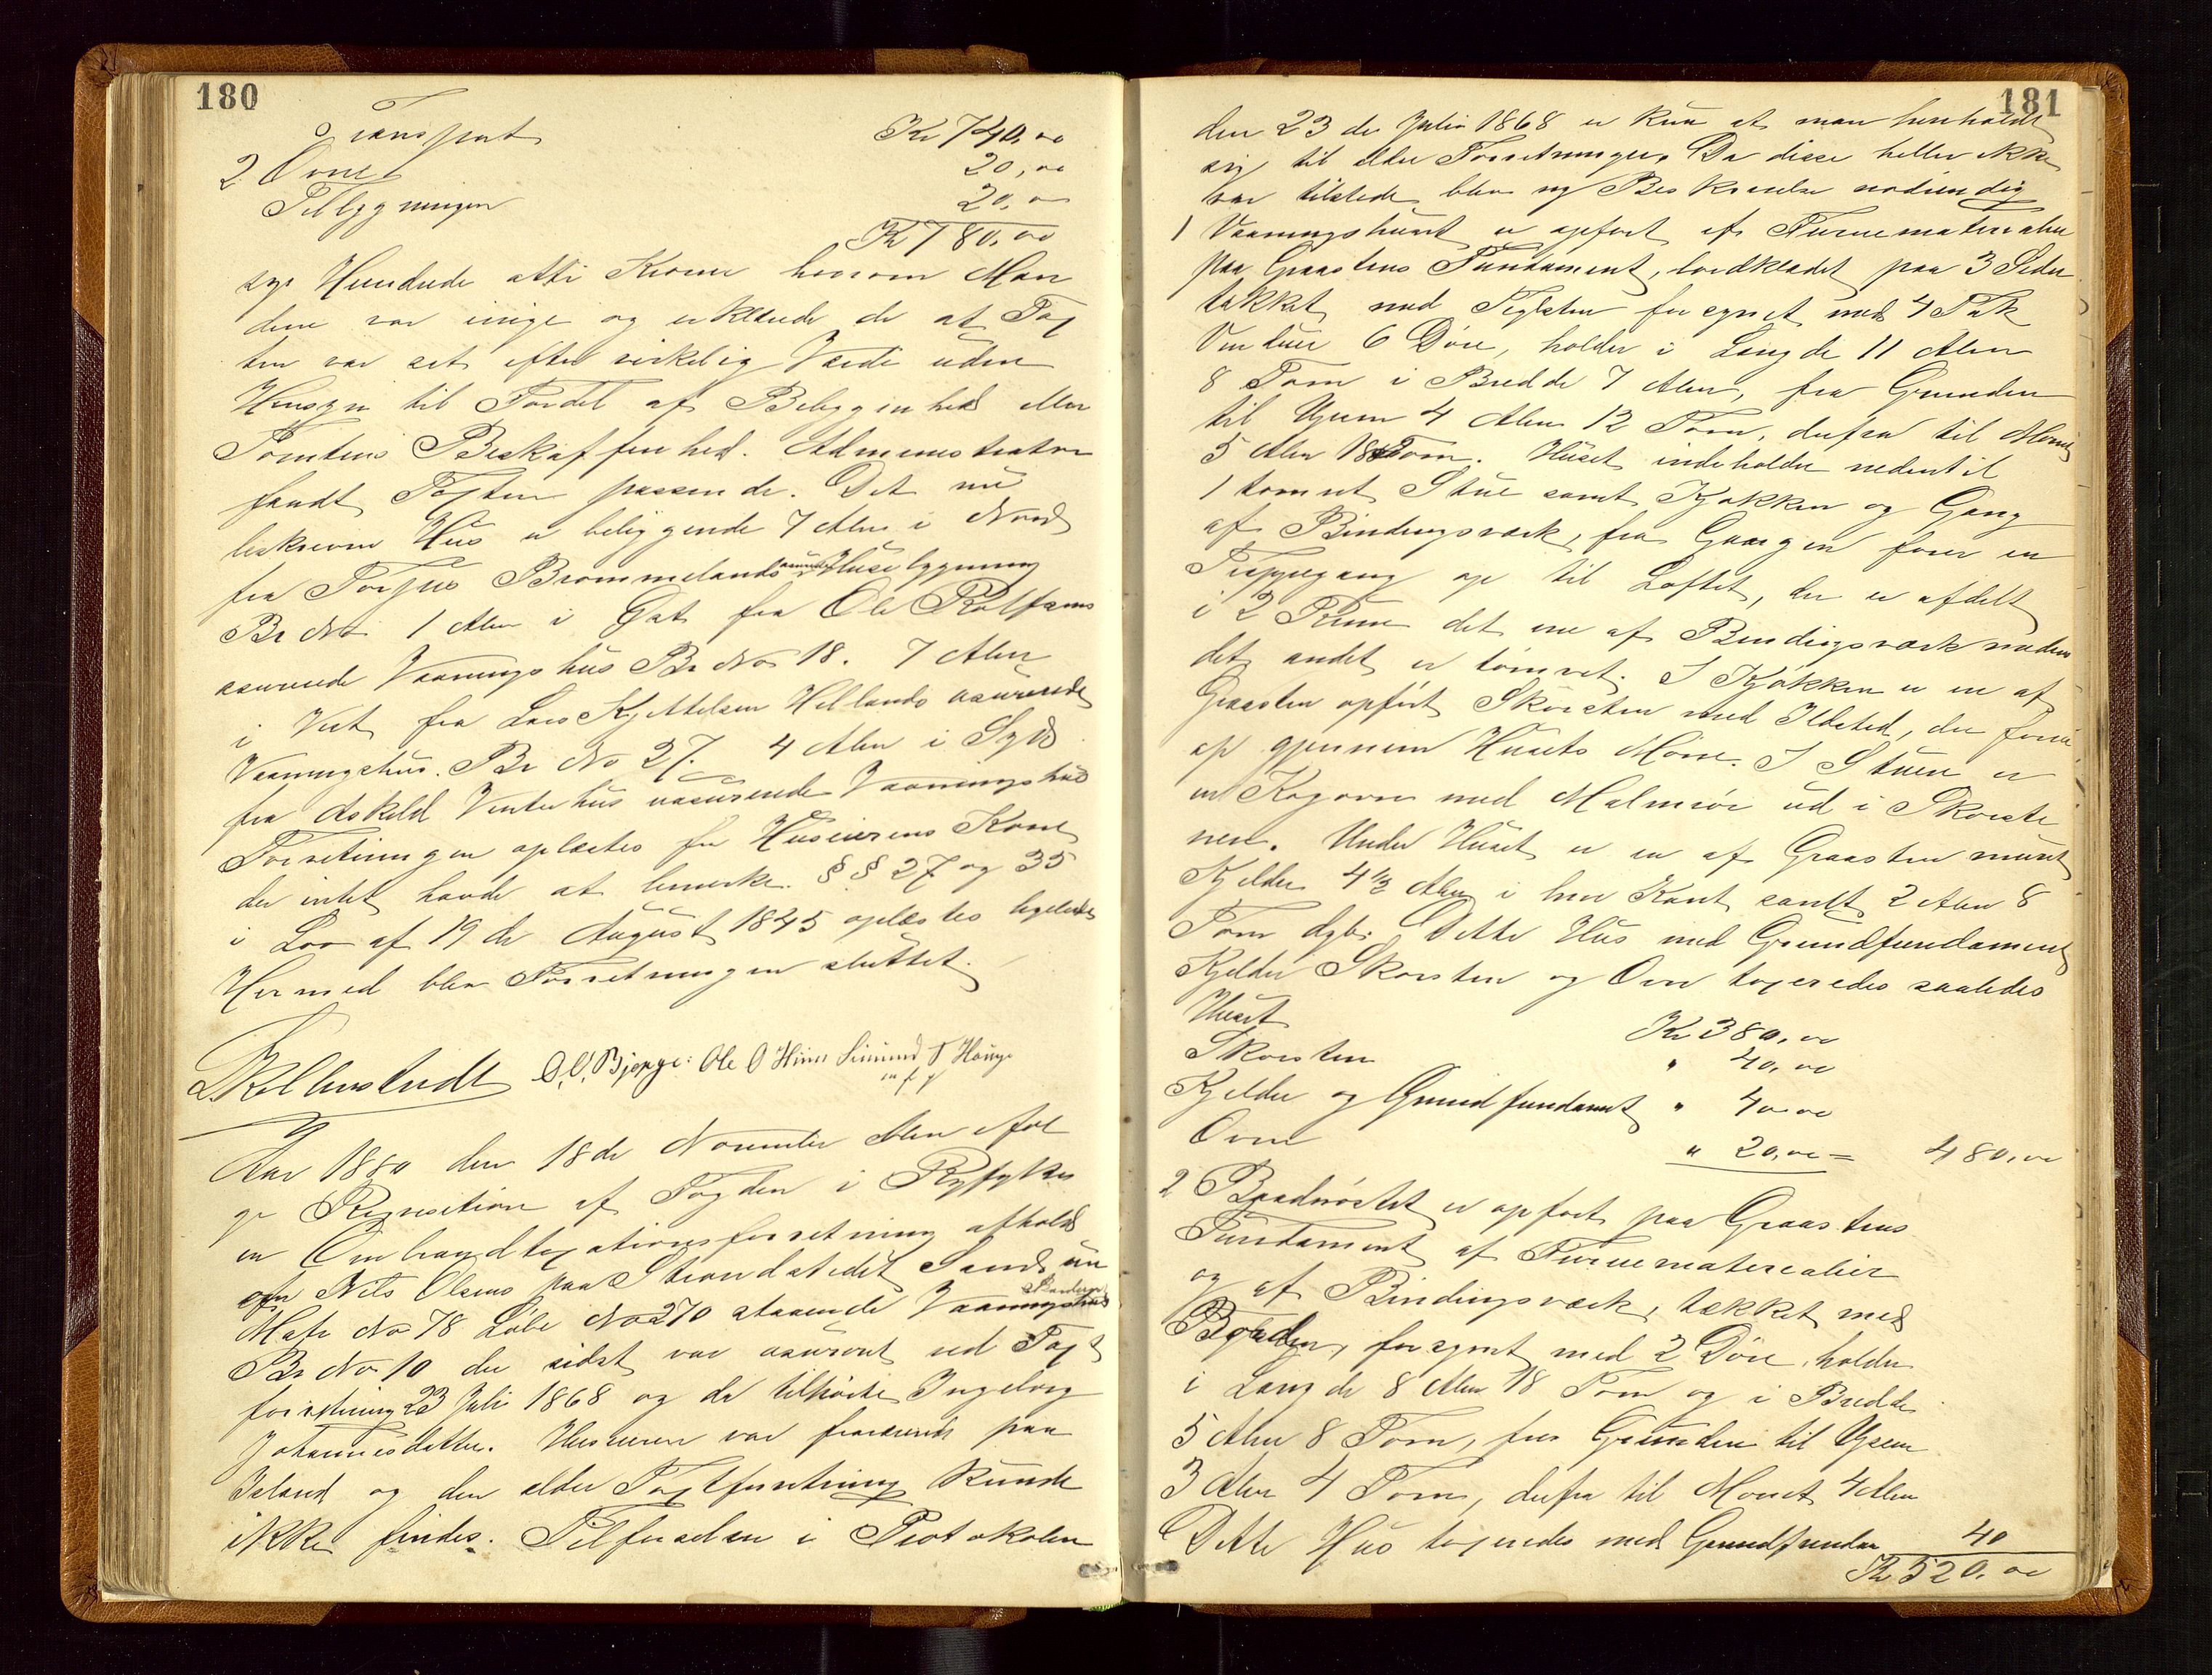 180
Transport Kr 740,00
2 Ovne 20,00
Tilbygningen 20,00
Kr 780,00
syv Hundrede otti Kroner hvorom Mæn
dene var enige og erklærede de at Tax
ten var sat efter virkelig Værdi uden
Hensyn til Fordel af Beliggenhed eller
Tomtens Beskaffenhed. Administrator
fandt Taxten passende. Det nu
beskrevne Hus er beliggende 7 Alen i Nord
fra Torjus Brommelands Husebygning
Br No 1 Alen i Øst fra Ole Rolfsens
assurerede Vaaningshus Br No 18. 7 Alen
i Vest fra Lars Kjettelsen Hellands asurerede
Vaaningshus. Br No 27. 4 Alen i Syd
fra Askeld Vinterhus uasurerede Vaaningshus
Forretningen oplæstes for Huseierens Kone
der intet havde at bemerke. §§ 27 og 35
i Lov af 19de August 1845 oplæstes ligeledes
Hermed blev Forretningen sluttet.
O. O. Bjerge: Ole O Hiim Simund T Houge
m f p
Aar 1880 den 18de November blev efter
Reqvisition af Fogden i Ryfylke
en Ombrandtaxationsforretning afholdt
over Nils Olsens paa Strandstedet Sand un
Matr No 78 Løbe No 270 staaende Vaaningshus
Br No 10 der sidst var asureret ved Taxt
forretning 23 Juli 1868 og da tilhørte Ingeborg
Johannesdatter. Huseieren var fraværende paa
Island og den ældre Taxtforretning kunde
ikke findes. Tilførselen i Protokolen
181
den 23de Juli 1868 er kun at man henholdt
sig til ældre Forretninger. Da disse heller ikke
var tilstede blev ny Beskrivelse nødvendig
1 Vaaningshuset er opført af Furuematerialier
paa Graastens Fundament, bordklædet paa 3 Sider
tækket med Teglsten forsynet med 4 Fak
Vinduer 6 Døre, holder i Længde 11 Alen
8 Tom i Bredde 7 Alen, fra Grunden
til Ujsen 4 Alen 12 Tom, derfra til Mønet
5 Alen 18 Tom. Huset indeholder nedentil
1 tømret Stue samt Kjøkken og Gang
af Bindingsværk, fra Gangen fører en
Trappegang op til Loftet, der er afdelt
i 2 Rum det ene af Bindingsværk medens
det andet er tømret. I Kjøkken er en af
Graasten opført Skorsten med Ildsted, der fører
op gjennem Husets Møne. I Stuen er
en Kogovn med Malmrør ud i Skorste
nen. Under Huset er en af Graasten muret
Kjelder 4 1/2 Alen i hver Kant samt 2 Alen 8
Tom dyb. Dette Hus med Grundfundament
Kjelder Skorsten og Ovn taxeredes saaledes
Huset Kr 380,00
Skorsten " 40,00
Kjelder og Grundfundamt " 40,00
Ovne " 20,00 = 480,00
2 Brednøstet er opført paa Graastens
Fundament af Furuematerialier
og af Bindingsværk, tækket med
Borden, forsynet med 2 Døre, holder
i Længde 8 Alen 18 Tom og i Bredde
5 Alen 8 Tom, fra Grunden til Ujsen
3 Alen 4 Tom, derfra til Mønet 4 Alen
Dette Hus taxeredes med Grundfundam 40
Kr 520,00